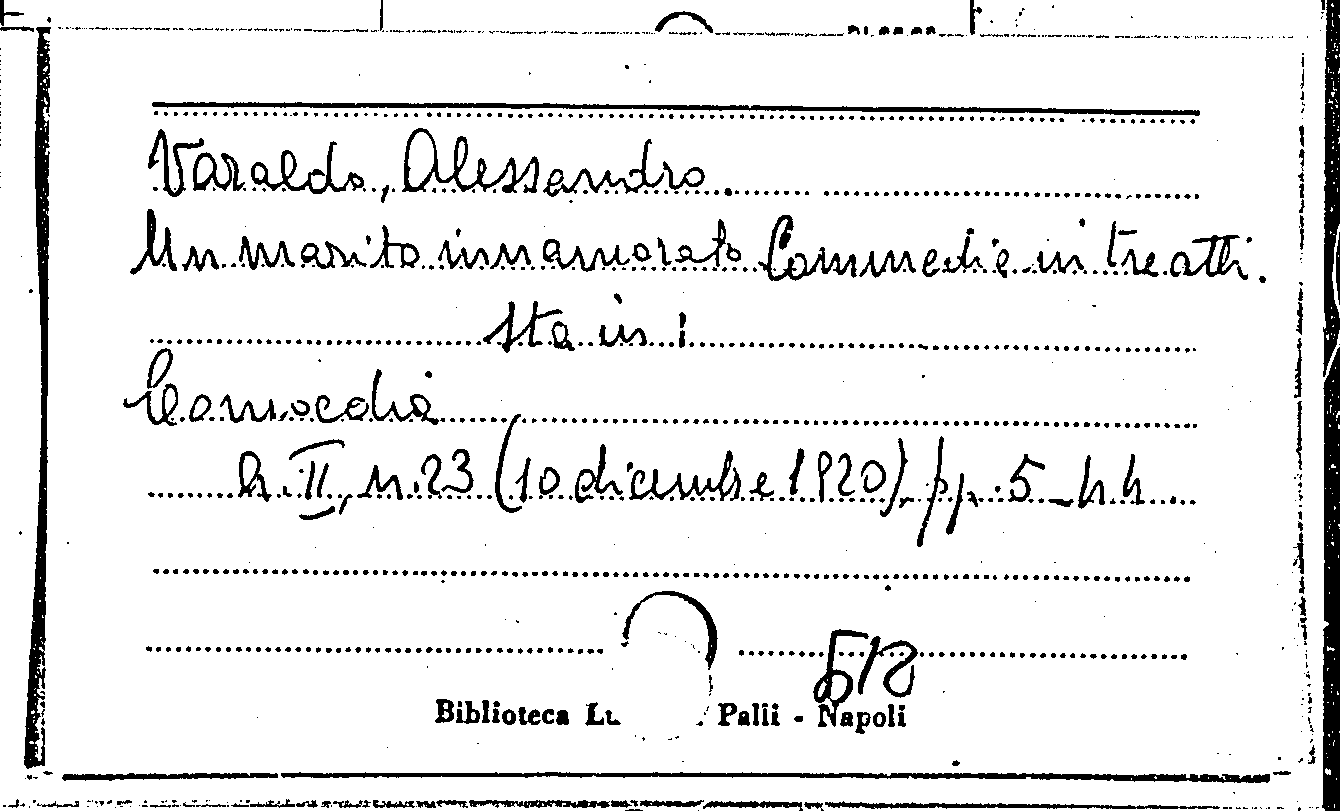 Varaldo, Alessandro.
Un marito innamorato Commedia in tre atti.
Sta in:
Comoedia
A. II, n. 23 (10 dicembre 1920), pp. 5-44
518
Biblioteca Palli - Napoli